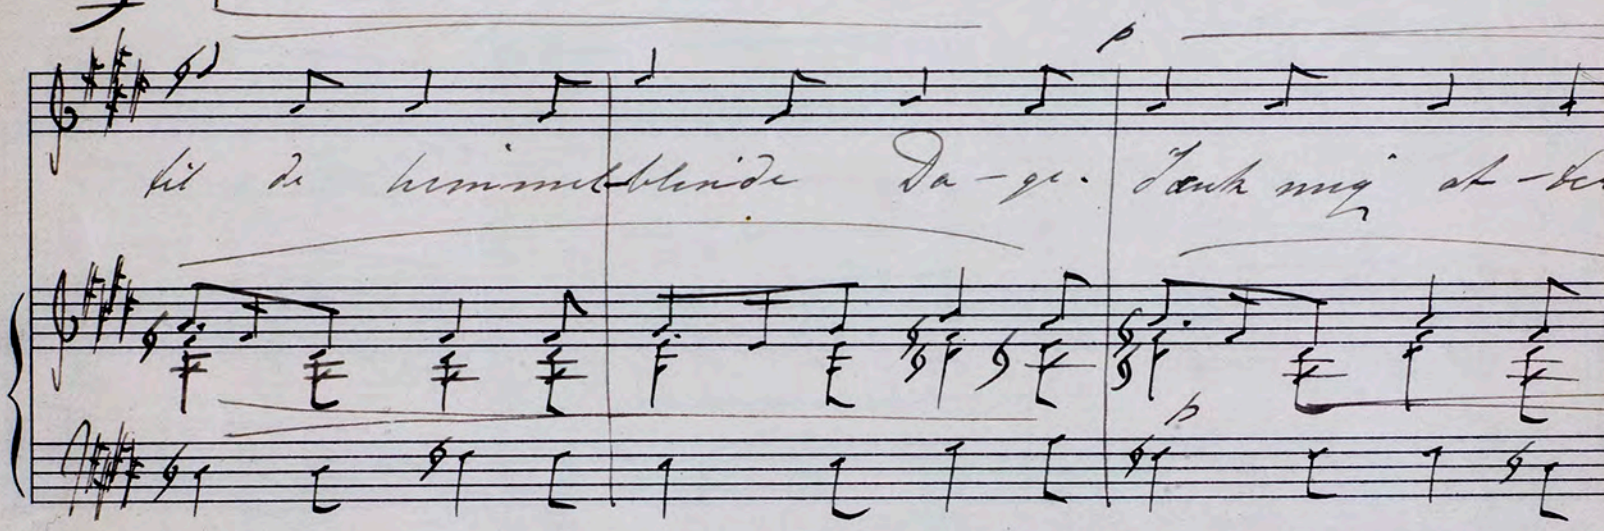 p
til de himmelblinde Da-ge. Tænk mig at-
p